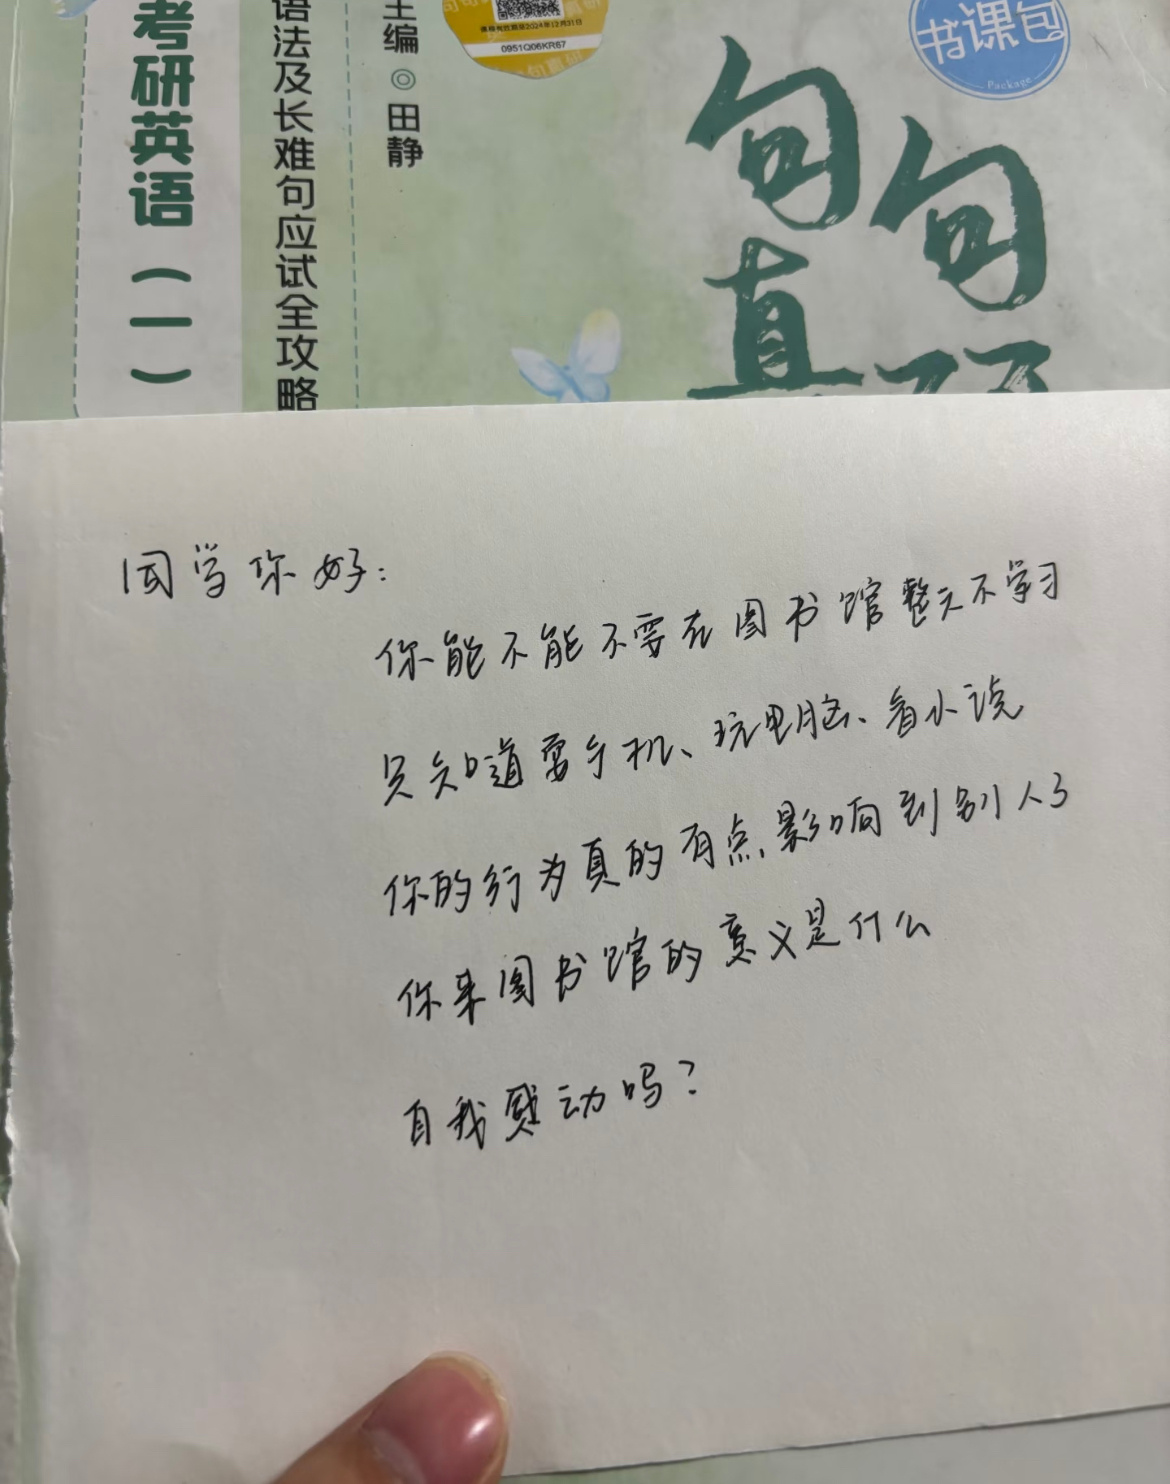 考研英语（一）
语法及长难句应试全攻略
主编◎田静
课程有效期至2024年12月31日
0951Q06KR67
书课包
Package
句句真
同学你好：
你能不能不要在图书馆整天不学习
只知道耍手机、玩电脑、看小说
你的行为真的有点影响到别人了
你来图书馆的意义是什么
自我感动吗？